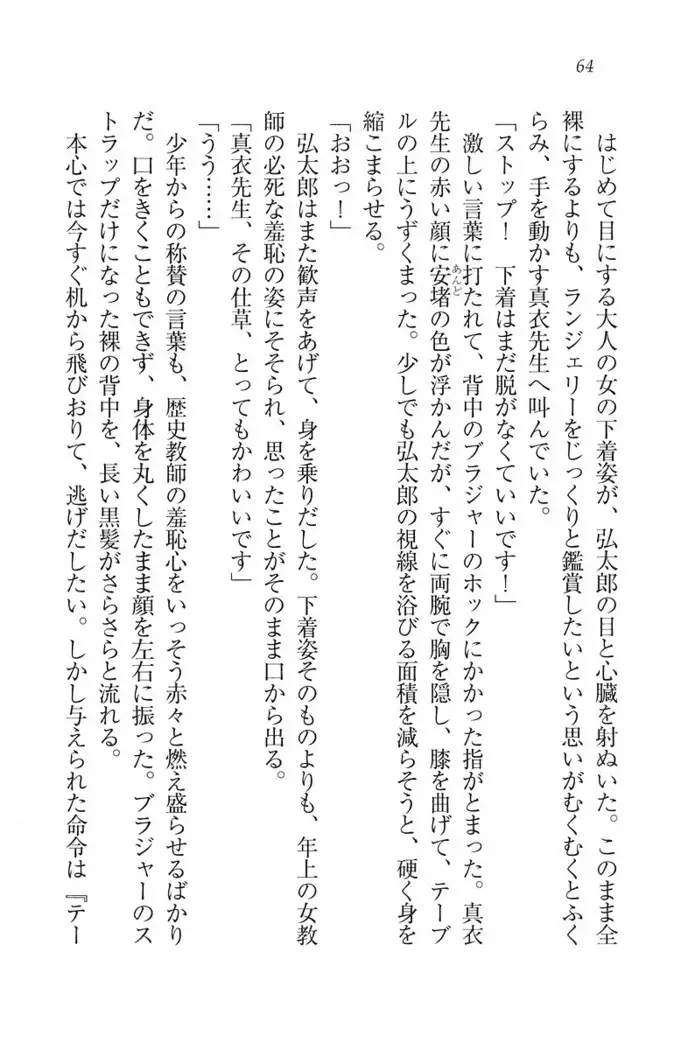 64
はじめて目にする大人の女の下着姿が、弘太郎の目と心臓を射ぬいた。このまま全
裸にするよりも、ランジェリーをじっくりと鑑賞したいという思いがむくむくとふく
らみ、手を動かす真衣先生へ叫んでいた。
「ストップ！　下着はまだ脱がなくていいです！」
激しい言葉に打たれて、背中のブラジャーのホックにかかった指がとまった。真衣
先生の赤い顔に安堵あんどの色が浮かんだが、すぐに両腕で胸を隠し、膝を曲げて、テーブ
ルの上にうずくまった。少しでも弘太郎の視線を浴びる面積を減らそうと、硬く身を
縮こまらせる。
「おおっ！」
弘太郎はまた歓声をあげて、身を乗りだした。下着姿そのものよりも、年上の女教
師の必死な羞恥の姿にそそられ、思ったことがそのまま口から出る。
「真衣先生、その仕草、とってもかわいいです」
「うう……」
少年からの称賛の言葉も、歴史教師の羞恥心をいっそう赤々と燃え盛らせるばかり
だ。口をきくこともできず、身体を丸くしたまま顔を左右に振った。ブラジャーのス
トラップだけになった裸の背中を、長い黒髪がさらさらと流れる。
本心では今すぐ机から飛びおりて、逃げだしたい。しかし与えられた命令は『テー